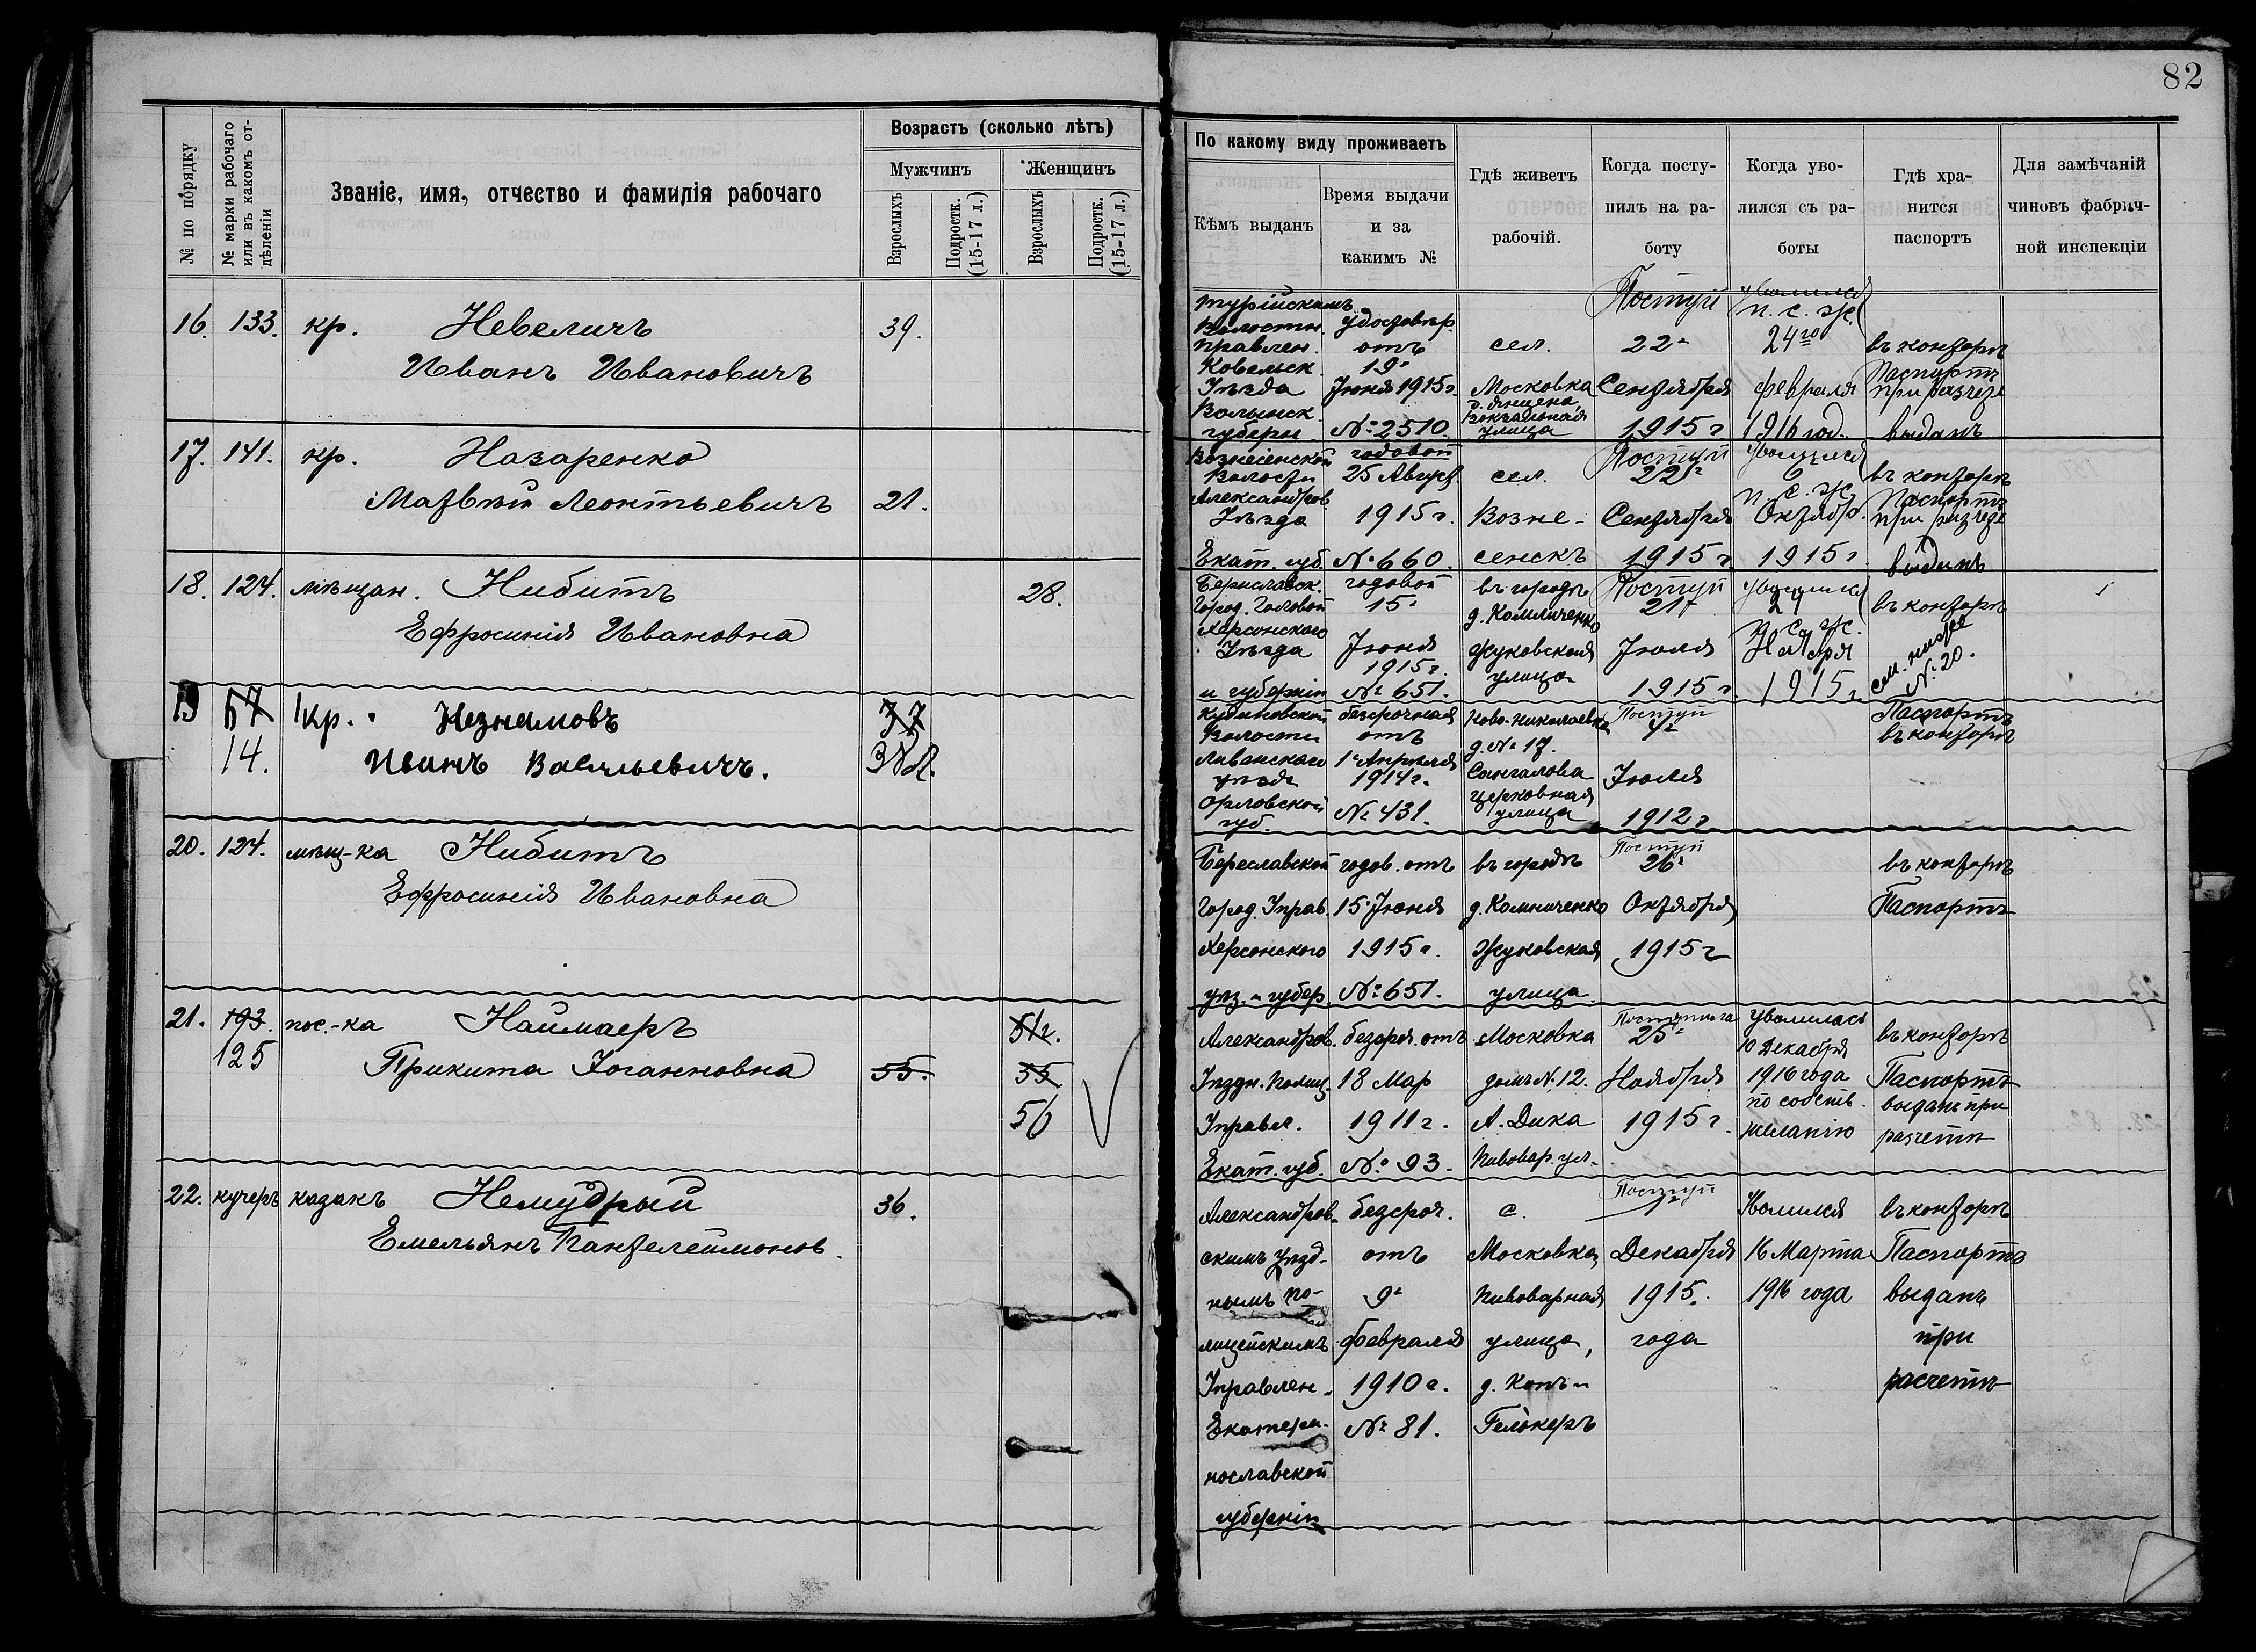 82
№ по порядку
№ марки рабочаго или въ какомъ от-дѣленіи
Званіе, имя, отчество и фамилія рабочаго
Возрастъ (сколько лѣтъ)
Мужчинъ
Женщинъ
Взрослыхъ
Подростк. (15-17 л.)
Взрослыхъ
Подростк. (15-17 л.)
По какому виду проживаетъ
Кѣмъ выданъ
Время выдачи
и за
какимъ №
Гдѣ живетъ
рабочій.
Когда посту-
пилъ на ра-
боту
Когда уво-
лился съ ра-
боты
Гдѣ хра-
нится
паспортъ
Для замѣчаній
чиновъ фабрич-
ной инспекціи
16. 133. кр. Невеличъ 39.
Иванъ Ивановичъ
Турійскимъ
Волостн.
Правлен.
Ковельск.
Уѣзда
Волынск.
губерн.
Удостовѣр.
отъ
19г
Іюня 1915г.
№ 2510.
сел.
Московка
Вокзальная
улица
Поступ
22г
Сентября
1915 г
уволился
п. с. ж.
24го
февраля
1916 год.
въ конторѣ
Паспортъ
при разчетѣ
выданъ
17. 141. кр. Назаренко
Матвѣй Леонтьевичъ 21.
Вознесенской
Волости
Александров
Уѣзда
Екат. губ.
годовой
25 Август
1915 г.
№ 660.
сел.
Возне-
сенскъ
Поступ
22г
Сентября
1915 г
Уволился
6
п. с. ж.
Октябр.
1915 г
въ конторѣ
Паспортъ
при разчетѣ
выданъ
18. 124. мѣщан. Нибитъ 28.
Ефросинія Ивановна
Бериславск.
Город. Головой
Херсонского
Уѣзда
и губерніи
годовой
15г
Іюня
1915 г.
№ 651.
въ городѣ
Жуковская
улица
Поступ
21г
Іюля
1915 г.
27
п. с. ж.
Ноября
1915 г
въ конторѣ
см. ниже
№ 20.
19 57 кр. Незнамовъ 37
14. Иванъ Васильевичъ. 38 л.
Волости
Ливенского
уѣзда
Орловской
губ.
безсрочная
отъ
1г Апрѣля
1914 г.
№ 431.
Ново-Николаевка
д. № 17.
церковная
улица
Поступ
Іюля
1912 г
Паспортъ
въ конторѣ
20. 124. мѣщ-ка Нибитъ
Ефросинія Ивановна
Береславской
Город. Управ.
Херсонского
уѣз. и губер
годов. отъ
15г Іюня
1915 г.
№ 651.
въ городѣ
д. Комниченко
Жуковская
улица
Поступ
26г
Октября
1915 г
въ конторѣ
Паспортъ
21. 193. пос.-ка Наймаеръ
125 Прикита Іоганновна 55. 35
56
Александров.
Уѣздн. Полиц.
Управл.
Екат. губ.
безсроч. отъ
18 Мар
1911 г.
№ 93.
Московка
домъ № 12.
А. Дика
Пивовар. ул.
Поступила
25г
Ноября
1915 г.
уволилась
10 Декабря
1916 года
по собств.
желанію
въ конторѣ
Паспортъ
выданъ при
расчетѣ
22. кучеръ казакъ Немудрый 36.
Емельянъ Пантелеймонов.
Александров-
скимъ Уѣзд-
нымъ По-
лицейскимъ
Управлен.
Екатери-
нославской
губерніи
безсроч.
отъ
9г
февраля
1910 г.
№ 81.
с.
Московка,
Пивоварная
улица,
Гелькеръ
Поступ
Декабря
1915.
года
Уволился
16 Марта
1916 года
въ конторѣ
Паспортъ
выданъ
при
расчетѣ